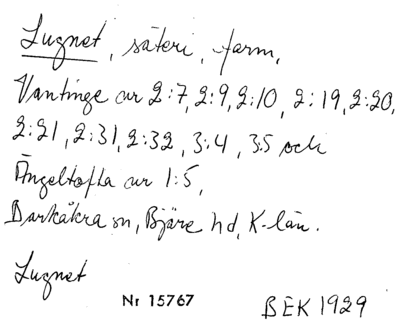 Lugnet, säteri, farm,
Vantinge av 2:7, 2:9, 2:10, 2:19, 2:20,
2:21, 2:31, 2:32, 3:4, 3:5 och
Ängeltofta av 1:5,
Barkåkra sn, Bjäre hd, K-län.
Lugnet
Nr 15767 BEK 1929